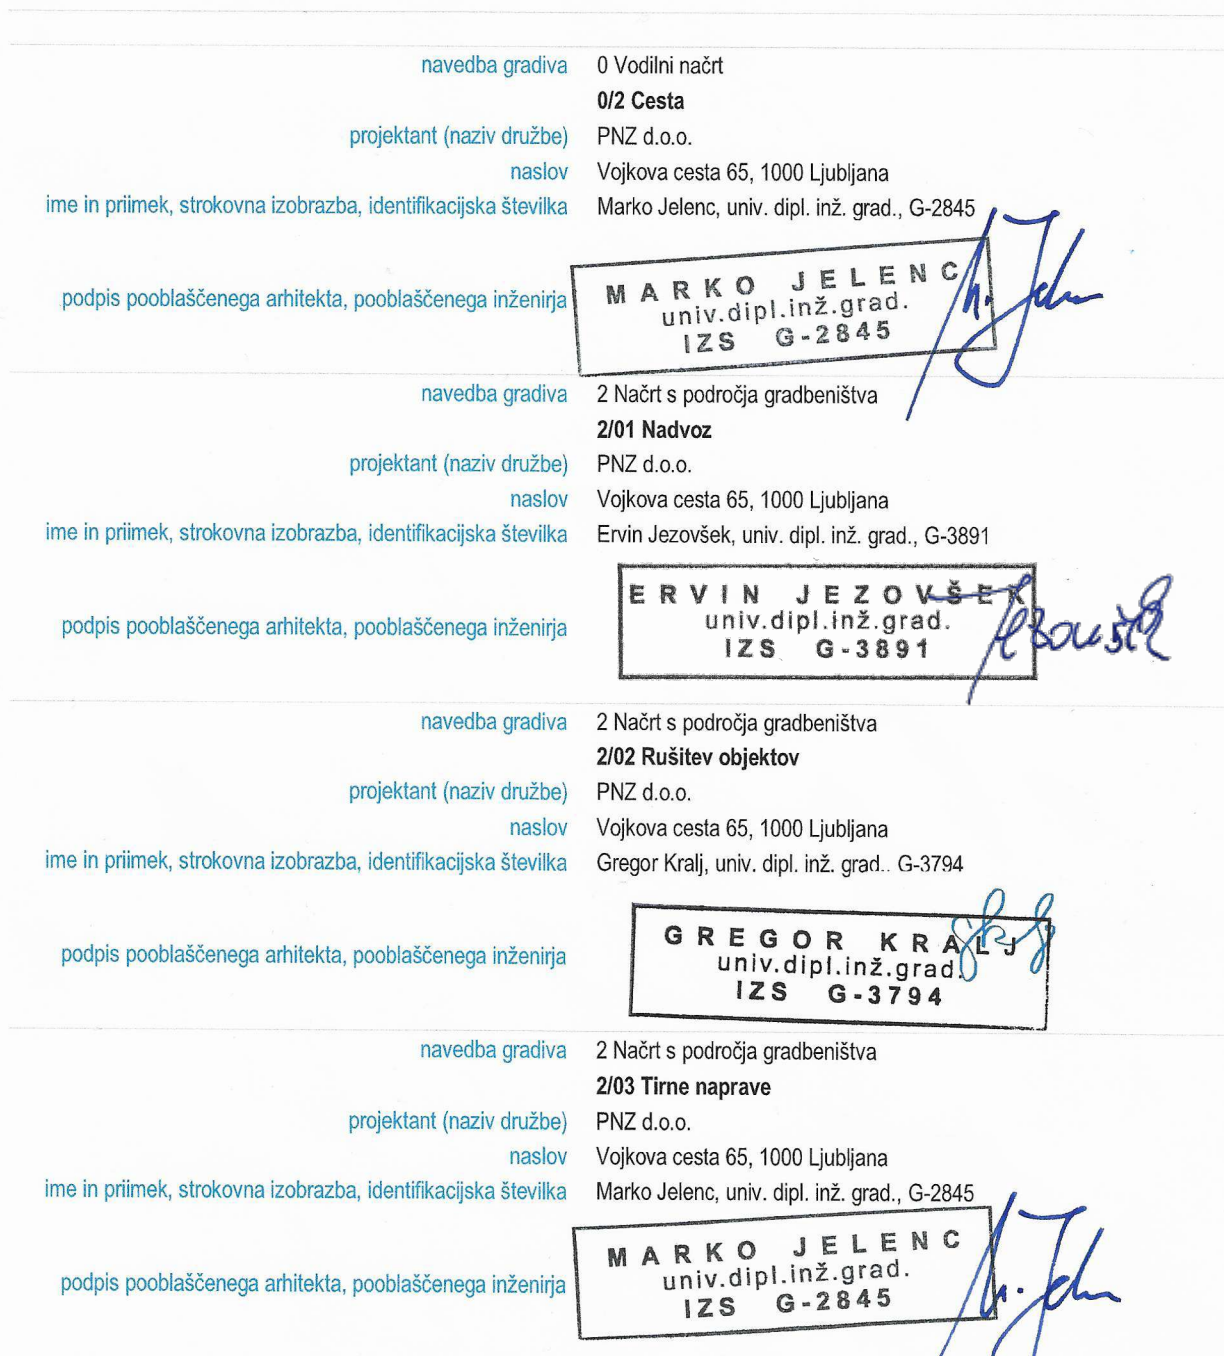 navedba gradiva 0 Vodilni načrt
0/2 Cesta
projektant (naziv družbe) PNZ d.o.o.
naslov Vojkova cesta 65, 1000 Ljubljana
ime in priimek, strokovna izobrazba, identifikacijska številka Marko Jelenc, univ. dipl. inž. grad., G-2845
podpis pooblaščenega arhitekta, pooblaščenega inženirja
MARKO JELENC
univ.dipl.inž.grad.
IZS G-2845
navedba gradiva 2 Načrt s področja gradbeništva
2/01 Nadvoz
projektant (naziv družbe) PNZ d.o.o.
naslov Vojkova cesta 65, 1000 Ljubljana
ime in priimek, strokovna izobrazba, identifikacijska številka Ervin Jezovšek, univ. dipl. inž. grad., G-3891
podpis pooblaščenega arhitekta, pooblaščenega inženirja
ERVIN JEZOVŠEK
univ.dipl.inž.grad.
IZS G-3891
navedba gradiva 2 Načrt s področja gradbeništva
2/02 Rušitev objektov
projektant (naziv družbe) PNZ d.o.o.
naslov Vojkova cesta 65, 1000 Ljubljana
ime in priimek, strokovna izobrazba, identifikacijska številka Gregor Kralj, univ. dipl. inž. grad.. G-3794
podpis pooblaščenega arhitekta, pooblaščenega inženirja
GREGOR KRALJ
univ.dipl.inž.grad.
IZS G-3794
navedba gradiva 2 Načrt s področja gradbeništva
2/03 Tirne naprave
projektant (naziv družbe) PNZ d.o.o.
naslov Vojkova cesta 65, 1000 Ljubljana
ime in priimek, strokovna izobrazba, identifikacijska številka Marko Jelenc, univ. dipl. inž. grad., G-2845
podpis pooblaščenega arhitekta, pooblaščenega inženirja
MARKO JELENC
univ.dipl.inž.grad.
IZS G-2845